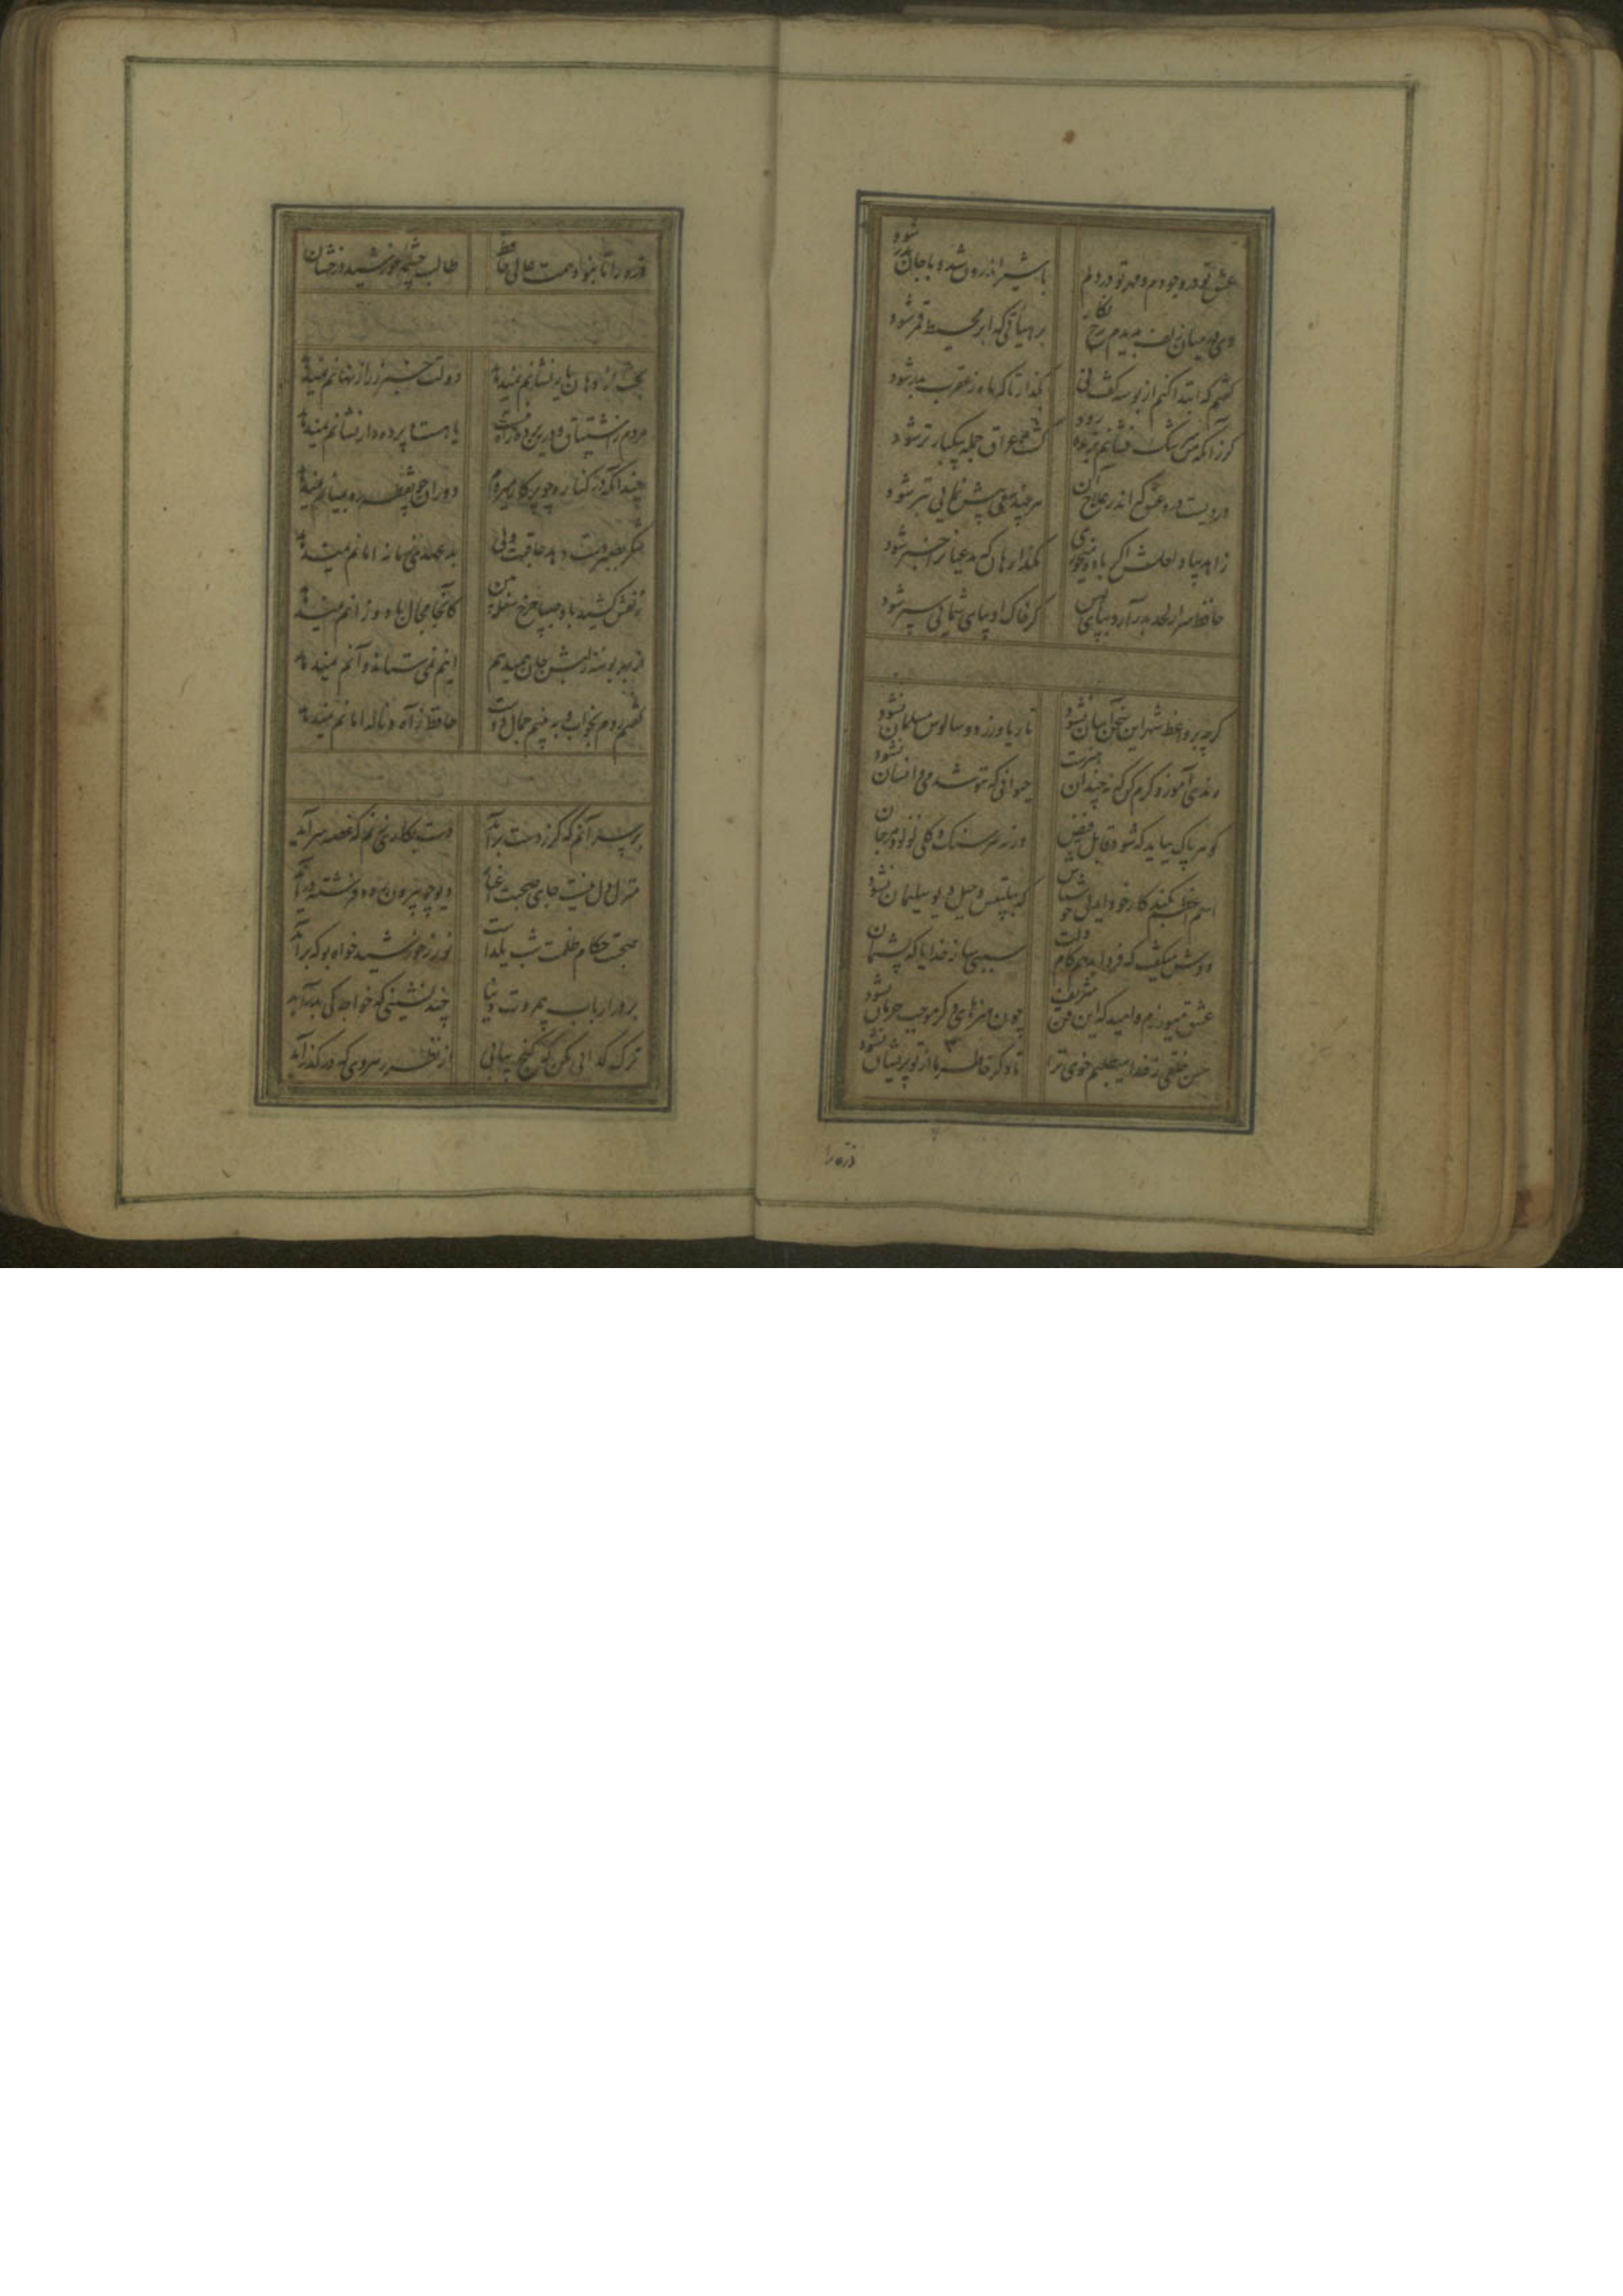 عشق تو در وجودم و مهر تو در دلم با شیر اندرون شد و با جان بدر شود
دی در میان زلف بدیدم رخ نگار بر هیأتی که ابر محیط قمر شود
گفتم که ابتدا کنم از بوسه گفت نی بگذار تا که ماه ز عقرب بدر شود
کشت عراق جمله بیکبار تر شود
دردیست درد عشق که اندر علاج آن هر چند سعی بیش نمایی بتر شود
بگذار هان که مدعیانرا خبر شود
حافظ سر از لحد بدر آرد بپای بوس گر خاک او بپای شما پی سپر شود
گرچه بر واعظ شهر این سخن آسان نشود تا ریا ورزد و سالوس مسلمان نشود
رندی آموز و کرم کن که نه چندان هنرست حیوانی که ننوشد می و انسان نشود
گوهر پاک بباید که شود قابل فیض ورنه هر سنگ و گلی لولو و مرجان نشود
اسم اعظم بکند کار خود ایدل خوش باش که بتلبیس و حیل دیو سلیمان نشود
دوش میگفت که فردا بدهم کام دلت سببی ساز خدایا که پشیمان نشود
عشق میورزم و امید که این فن شریف چون هنرهای دگر موجب حرمان نشود
حسن خلقی ز خدا میطلبم خوی ترا تا دگر خاطر ما از تو پریشان نشود
ذره را
ذره را تا نبود همت عالی حافظ طالب چشمه خورشید درخشان
بخت از دهان یار نشانم نمیدهد دولت خبر ز راز نهانم نمیدهد
مردم ز اشتیاق و درین پرده راه نیست یا هست و پرده دار نشانم نمیدهد
چندانکه در کنار چو پرکار میروم دوران چو نقطه ره بمیانم نمیدهد
شکر بصبر دست دهد عاقبت ولی بد عهدی زمانه امانم نمیدهد
زلفش کشید باد صبا چرخ سفله بین کانجا مجال باد وزانم نمیدهد
از بهر بوسه ز لبش جان همیدهم اینم نمی ستاند و آنم نمیدهد
گفتم روم بخواب و ببینم جمال دوست حافظ ز آه و ناله امانم نمیدهد
بر سر آنم که گر ز دست برآید دست بکاری زنم که غصه سرآید
منزل دل نیست جای صحبت اغیار دیو چو بیرون رود فرشته درآید
صحبت حکام ظلمت شب یلداست نور ز خورشید خواه بو که برآید
بر در ارباب بیمروت دنیا چند نشینی که خواجه کی بدرآید
ترک گدائی مکن که گنج بیابی از نظر رهروی که در گذر آید